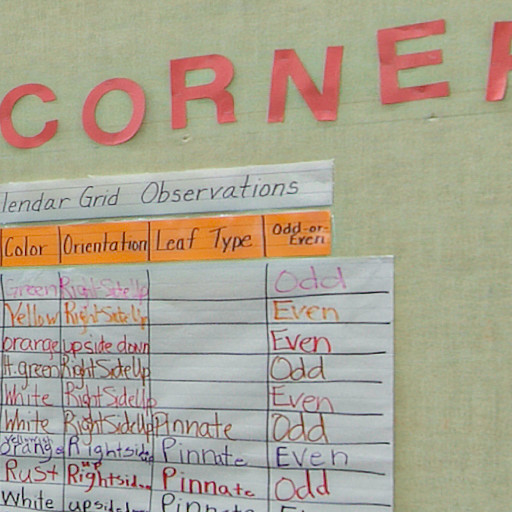 CORNER
lendar Grid Observations
Color Orientation Leaf Type Odd-or-Even
Green Right Side Up Odd
Yellow Right Side Up Even
orange upside down Even
lt. green Right Side Up Odd
White Right Side Up Even
White Right Side Up Pinnate Odd
yellowish orange Rightside Pinnate Even
Rust Rightsid.. up Pinnate Odd
White upsid Pinnate